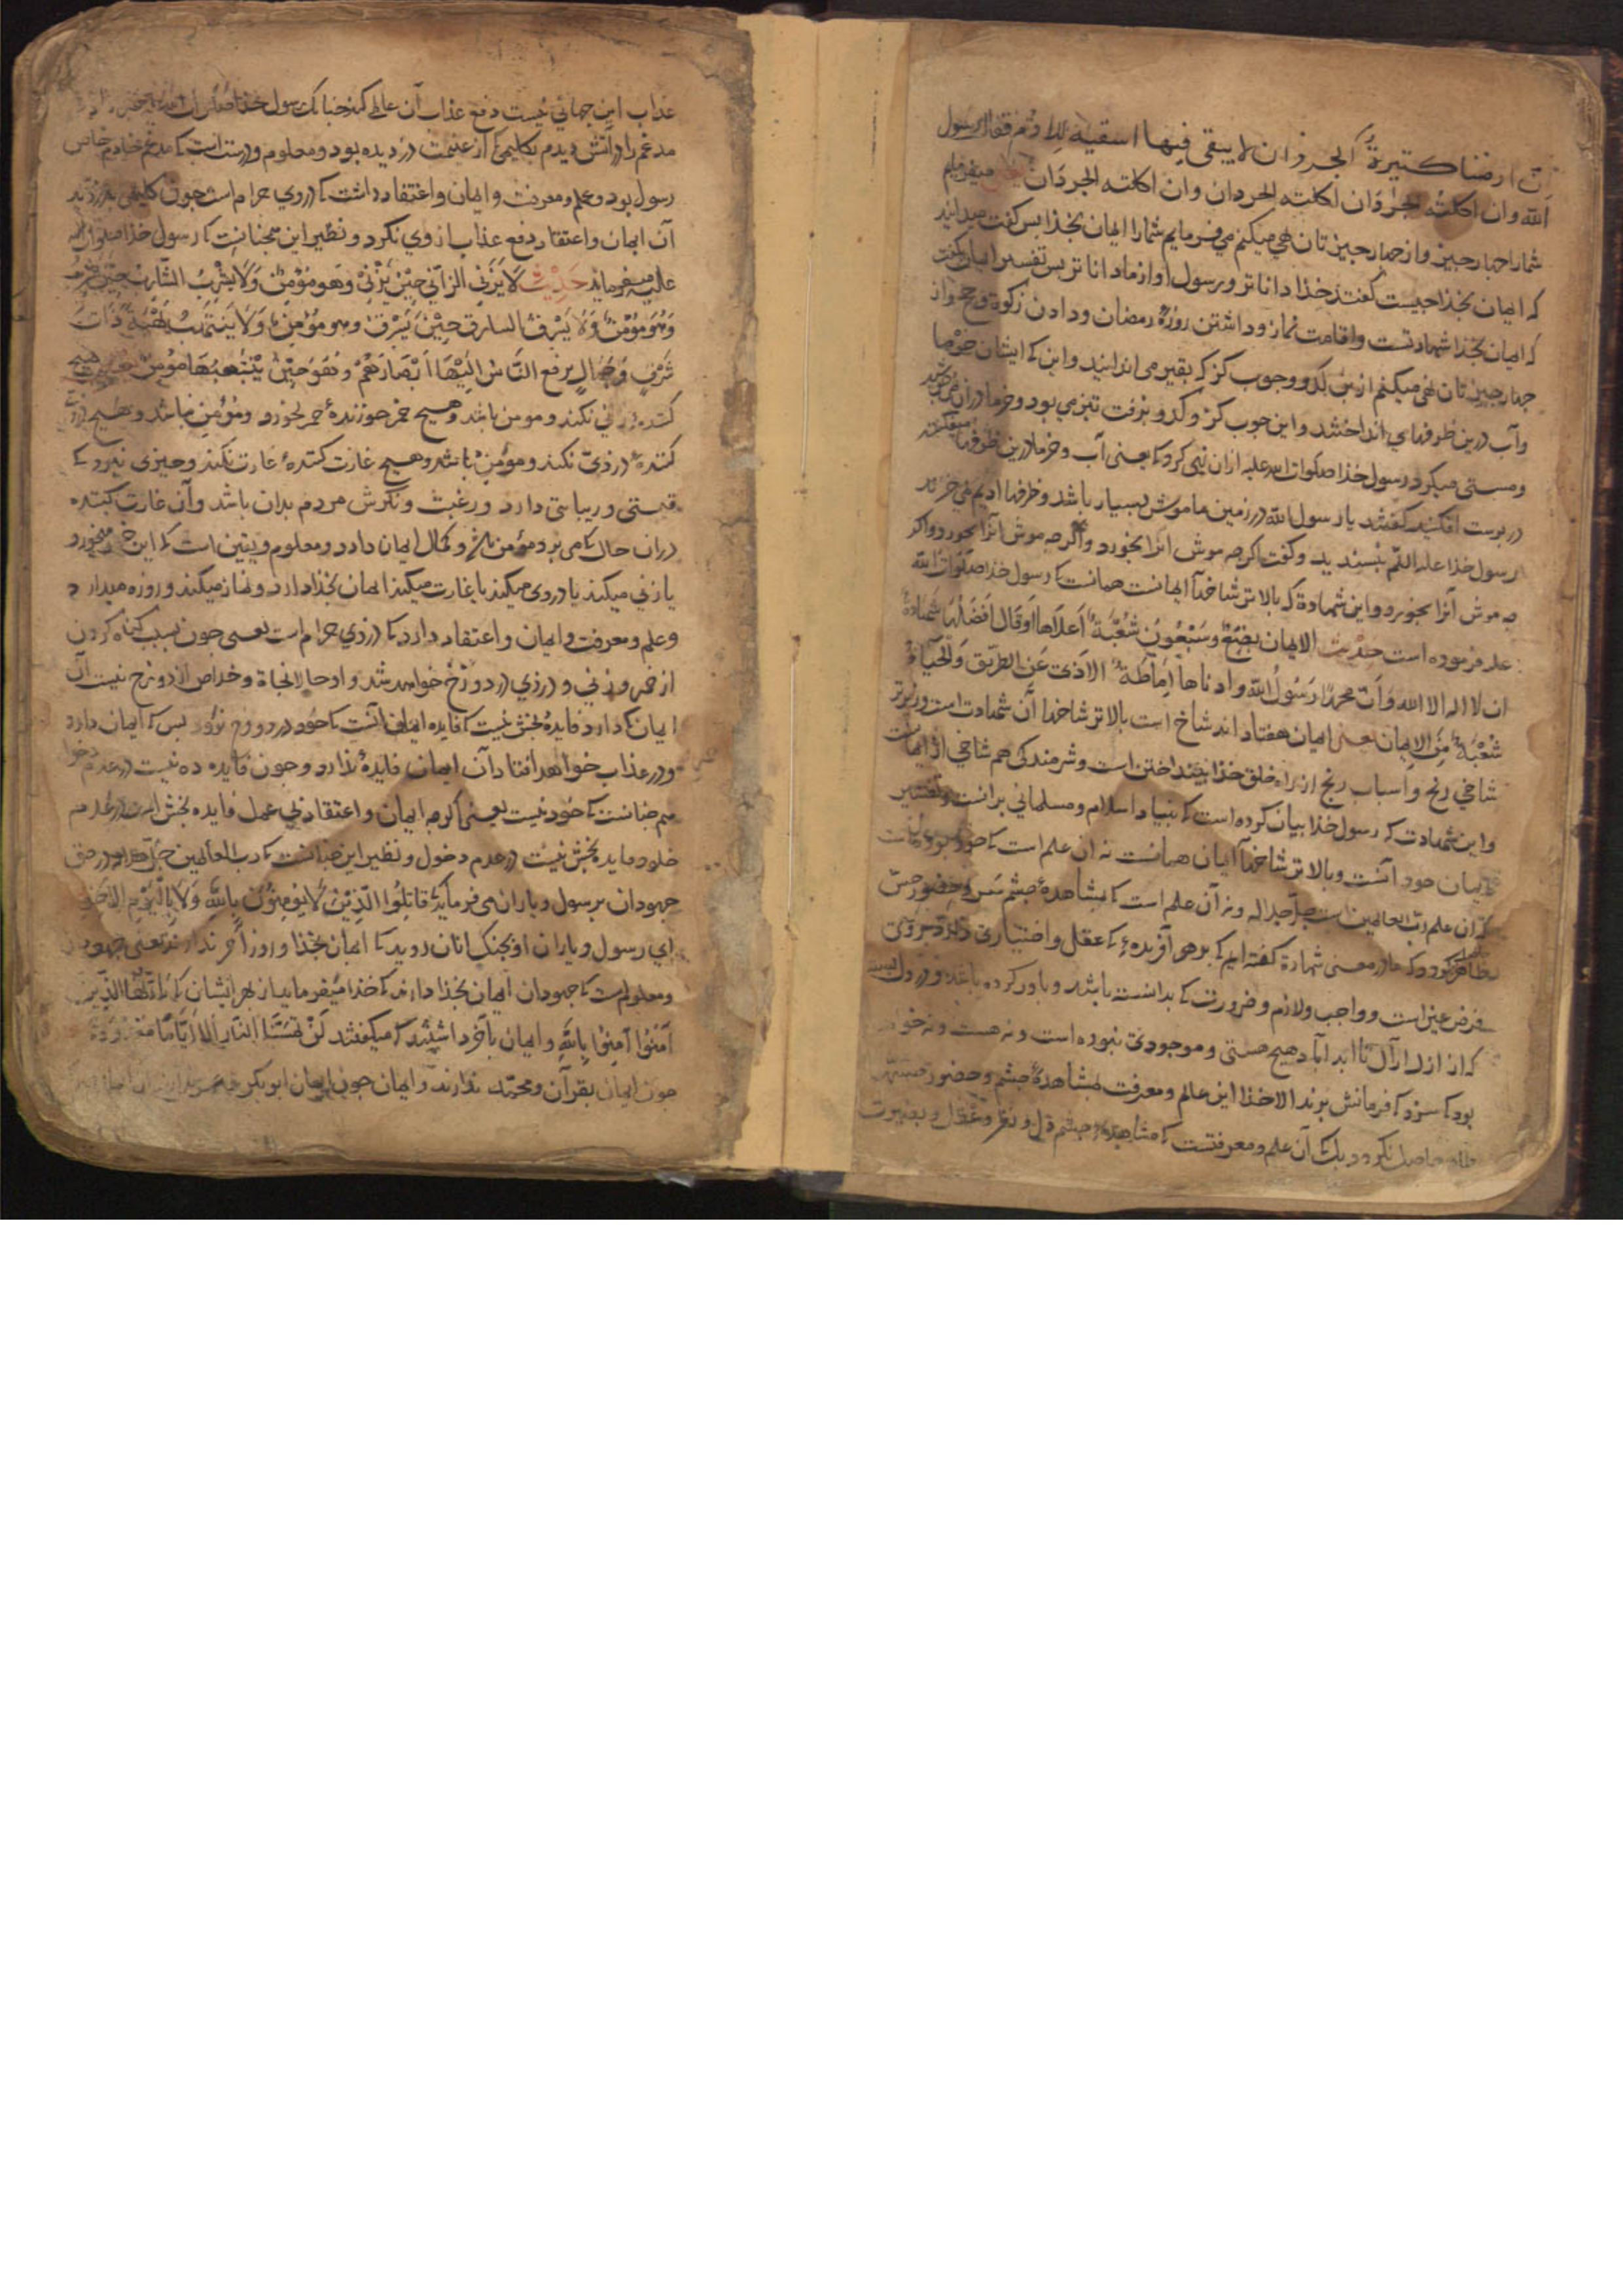 ان ارضنا كثيرة الجرذان لا يبقى فيها اسقية الادم فقال رسول
الله وان اكلته الجرذان وان اكلته الجرذان
شمارا چهار چیز و از چهار چیز تان نهی میکنم می فرمایم شمارا ایمان بخذا بس کفت میدانید
که ایمان بخذا چیست کفتند خذا داناتر و رسول او از ما داناتر بس تفسیر ایمان کفت
که ایمان بخذا شهادتست و اقامت نماز و داشتن روزه رمضان و دادن زکوة
چهار چیز تان نهی میکنم از کدو و چوب کز که بقیر می اندایند و این که ایشان خرما
و آب درین ظرفهای انداختند و این چوب کز و کدو و بزفت تیز می بود و خرما دران
و مستی میکرد رسول خذا صلوات الله علیه ازان نهی کرد که یعنی آب و خرما درین ظرفها میفکنید
در پوست افکنید کفتند یا رسول الله در زمین ما موش بسیار باشد و ظرفها ادیم می خرند
رسول خذا علیه السلم نپسندید و کفت اکرچه موش انرا بخورد و اکرچه موش انرا بخورد و اکر
چه موش آنرا بخورد و این شهادة که بالاتر شاخها ایمانست همانست که رسول خذا صلوات الله
علیه فرموده است حدیث الایمان بضع وسبعون شعبة اعلاها او قال افضلها شهادة
ان لا اله الا الله وان محمدا رسول الله وادناها اماطة الاذى عن الطریق والحیاء
شعبة من الایمان یعنی ایمان هفتاد اند شاخ است بالاتر شاخها آن شهادت است و زیرتر
شاخی رنج و اسباب رنج از راه خلق خذا بینداختن است و شرمندکی هم شاخی از ایمانست
و این شهادت که رسول خذا بیان کرده است که بنیاد اسلام و مسلمانی برانست و تفسیر
ایمان خود آنست و بالاتر شاخها ایمان همانست نه ان علم است که
که ان علم رب العالمین است جل جلاله و نه آن علم است که بمشاهده چشم سر و حضور حس
ظاهر کردد که ما در معنی شهادة کفته ایم که بر هر آفریده که عقل و اختیاری دارد
فرض عین است و واجب و لازم و ضرورت که بدانسته باشد و باور کرده باشد و در دل
که از ازل ازآل تا ابد آباد هیچ هستی و موجودی نبوده است و نه هست و نه
بود که سزد که فرمانش برند الا خذا این عالم و معرفت بمشاهده چشم و حضور
حاصل نکردد بلک آن علم و معرفتست که مشاهده چشم دل و نظر و عقل و بصیرت
عذاب این جهانی نیست دفع عذاب آن عالم کند چنانک رسول خذا
مدغم را در آتش دیدم بکلیمی که از غنیمت دزدیده بود و معلوم و درست است که مدغم خادم خاص
رسول بود و علم و معرفت و ایمان و اعتقاد داشت که دزدی حرام است چون کلیمی بدزدید
آن ایمان و اعتقاد دفع عذاب از وی نکرد و نظیر این همچنانست که رسول خذا صلوات الله
علیه میفرماید حدیث لا یزنی الزانی حین یزنی وهو مؤمن ولا یشرب الشارب حین یشرب
وهو مؤمن ولا یسرق السارق حین یسرق وهو مؤمن ولا ینتهب نهبة ذات
شرف وجمال یرفع الناس الیها ابصارهم وهو حین ینتهبها مؤمن یعنی هیچ
کننده زنی نکند و مومن باشد و هیچ خمر خورنده خمر نخورد و مؤمن باشد و هیچ
کننده دزدی نکند و مؤمن باشد و هیچ غارت کننده غارت نکند و چیزی نبرد که
قیمتی و زیبایی دارد و رغبت و نکرش مردم بدان باشد و آن غارت کننده
دران حال که می برد مؤمن باشد و کمال ایمان دارد و معلوم و یقین است که این خمر میخورد
یا زنی میکند یا دزدی میکند یا غارت میکند ایمان بخذا دارد و نماز میکند و روزه میدارد
و علم و معرفت و ایمان و اعتقاد دارد که دزدی حرام است یعنی چون بسبب کناه کردن
از خمر و زنی و دزدی در دوزخ خواهد شد و او حالا نجاة و خلاص از دوزخ نیست آن
ایمان که دارد فایده بخش نیست که فایده ایمان آنست که خود در دوزخ نرود بس که ایمان دارد
و در عذاب خواهد افتاد آن ایمان فایده ندارد و چون فایده ده نیست در عدم
هم چنانست که خود نیست یعنی اکرچه ایمان و اعتقاد بی عمل فایده بخش است در عدم
خلود فایده بخش نیست در عدم دخول و نظیر این چنانست که رب العالمین جل جلاله در حق
جهودان بر سول و یاران می فرماید قاتلوا الذین لا یؤمنون بالله ولا بالیوم الاخر
ای رسول و یاران او بجنک انان روید که ایمان بخذا و روز آخر ندارند یعنی جهودان
و معلوم است که جهودان ایمان بخذا دارند که خذا میفرماید از بهر ایشان که یا ایها الذین
آمنوا آمنوا بالله و ایمان بآخر داشتند که میکفتند لن تمسنا النار الا ایاما معدودة
چون ایمان بقرآن و محمد ندارند و ایمان چون ایمان ابوبکر